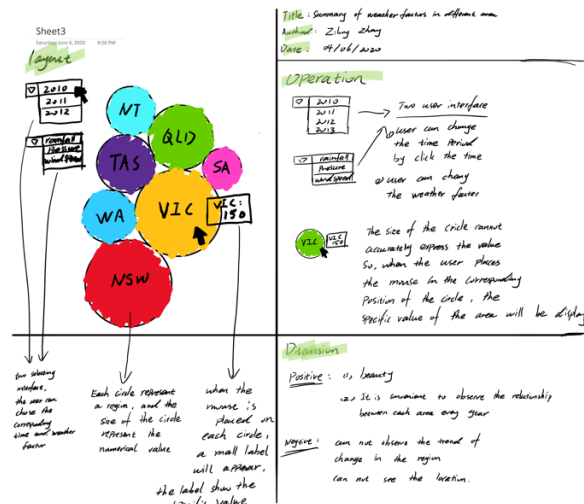 Sheet3
Saturday, June 6, 2020 9:56 PM
Layout
2010
2011
2012
rainfall
Pressure
windspeed
NT
QLD
TAS
SA
WA
VIC
VIC:
150
NSW
two selecting
interface,
the user can
chose the
corresponding
time and weather
factor
Each circle represent
a region, and the
size of the circle
represent the
numerical value
when the
mouse is
placed on
each circle,
a small label
will appear,
the label show the
specific value
Title: Summary of weather factors in different area
Author: Ziling Zhang
Date: 04/06/2020
Operation
2010
2011
2012
2013
rainfall
Pressure
windspeed
Two user interface
① user can change
the time Period
by click the time
② user can chang
the weather factor
VIC
VIC
150
The size of the cricle cannot
accurately express the value
So, when the user places
the mouse in the corresponding
Position of the circle, the
specific value of the area will be display
Discussion
Positive: (1), beauty
(2) It is convenient to observe the relationship
between each area every year
Negtive: can not observe the trend of
change in the region
can not see the location.